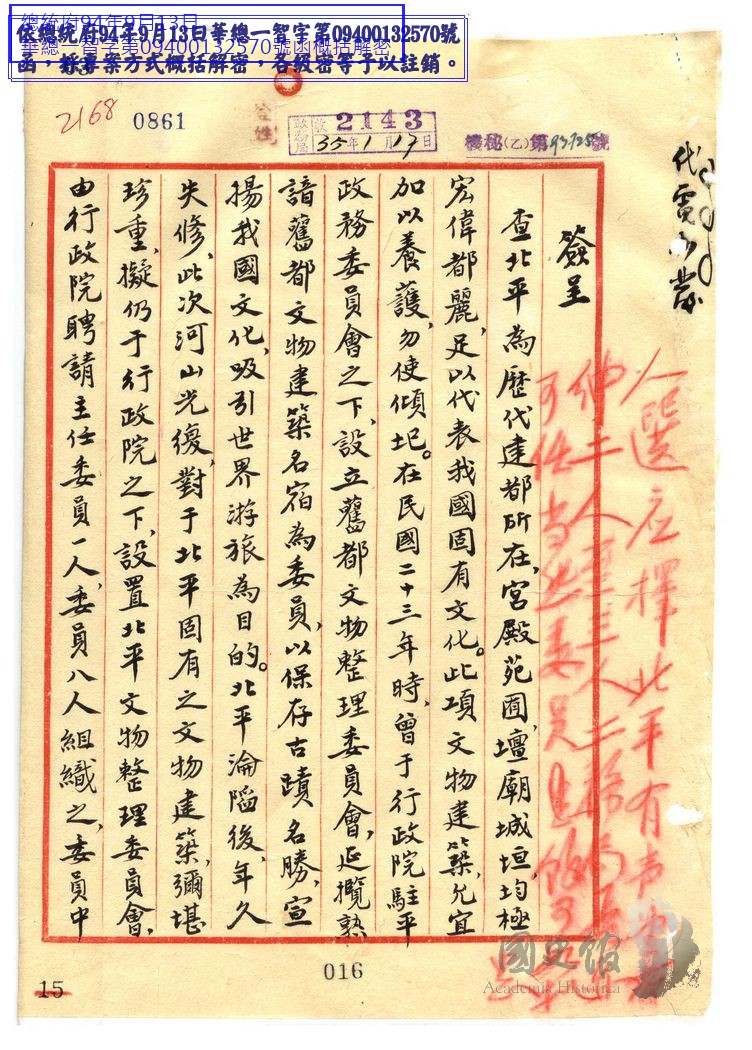 總統府94年9月13日
華總一智字第09400132570號函概括解密
依總統府94年9月13日華總一智字第09400132570號
函，採專案方式概括解密，各級密等予以註銷。
2168
0861
政務局
收
2143
35年1月17日
機秘(乙)第93725號
簽呈
查北平為歷代建都所在，宮殿苑囿，壇廟城垣，均極
宏偉都麗，足以代表我國固有文化。此項文物建築，允宜
加以養護，勿使傾圮。在民國二十三年時，曾于行政院駐平
政務委員會之下，設立舊都文物整理委員會，延攬熟
諳舊都文物建築名宿為委員，以保存古蹟名勝，宣
揚我國文化，吸引世界游旅為目的。北平淪陷後，年久
失修，此次河山光復，對于北平固有之文物建築，彌堪
珍重，擬仍于行政院之下，設置北平文物整理委員會，
由行政院聘請主任委員一人，委員八人組織之，委員中
人選應擇北平有
016
15
國史館
Academia Historica